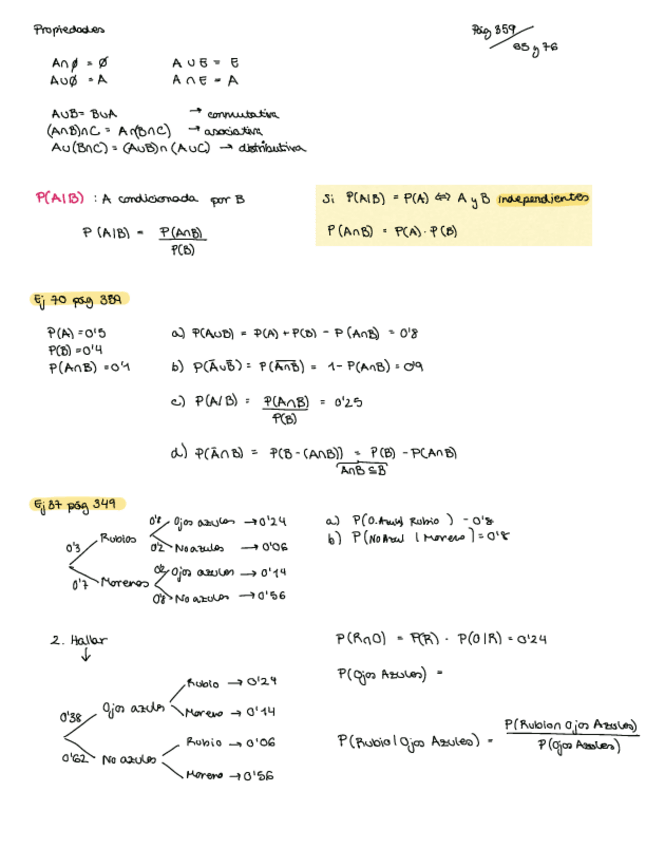 Propiedades
Pág 359
65 y 76
A∩∅ = ∅
A∪E = E
A∪∅ = A
A∩E = A
A∪B = B∪A → conmutativa
(A∩B)∩C = A∩(B∩C) → asociativa
A∪(B∩C) = (A∪B)∩(A∪C) → distributiva
P(A|B) : A condicionada por B
P(A|B) = P(A∩B) / P(B)
Si P(A|B) = P(A) ⇔ A y B independientes
P(A∩B) = P(A)·P(B)
Ej 70 pág 359
P(A) = 0'5
P(B) = 0'4
P(A∩B) = 0'1
a) P(A∪B) = P(A) + P(B) - P(A∩B) = 0'8
b) P(Ā∪B̄) = P(A̅∩̅B̅) = 1 - P(A∩B) = 0'9
c) P(A/B) = P(A∩B) / P(B) = 0'25
d) P(Ā∩B) = P(B-(A∩B)) = P(B) - P(A∩B)
A∩B⊆B
Ej 37 pág 349
0'3 Rubios
0'8 Ojos azules → 0'24
0'2 No azules → 0'06
0'7 Morenos
0'2 Ojos azules → 0'14
0'8 No azules → 0'56
a) P(O.Azul| Rubio) - 0'8
b) P(No Azul | Moreno) = 0'8
2. Hallar
↓
0'38 Ojos azules
Rubio → 0'24
Moreno → 0'14
0'62 No azules
Rubio → 0'06
Moreno → 0'56
P(R∩O) = P(R) · P(O|R) = 0'24
P(Ojos Azules) =
P(Rubio | Ojos Azules) = P(Rubio∩Ojos Azules) / P(Ojos Azules)